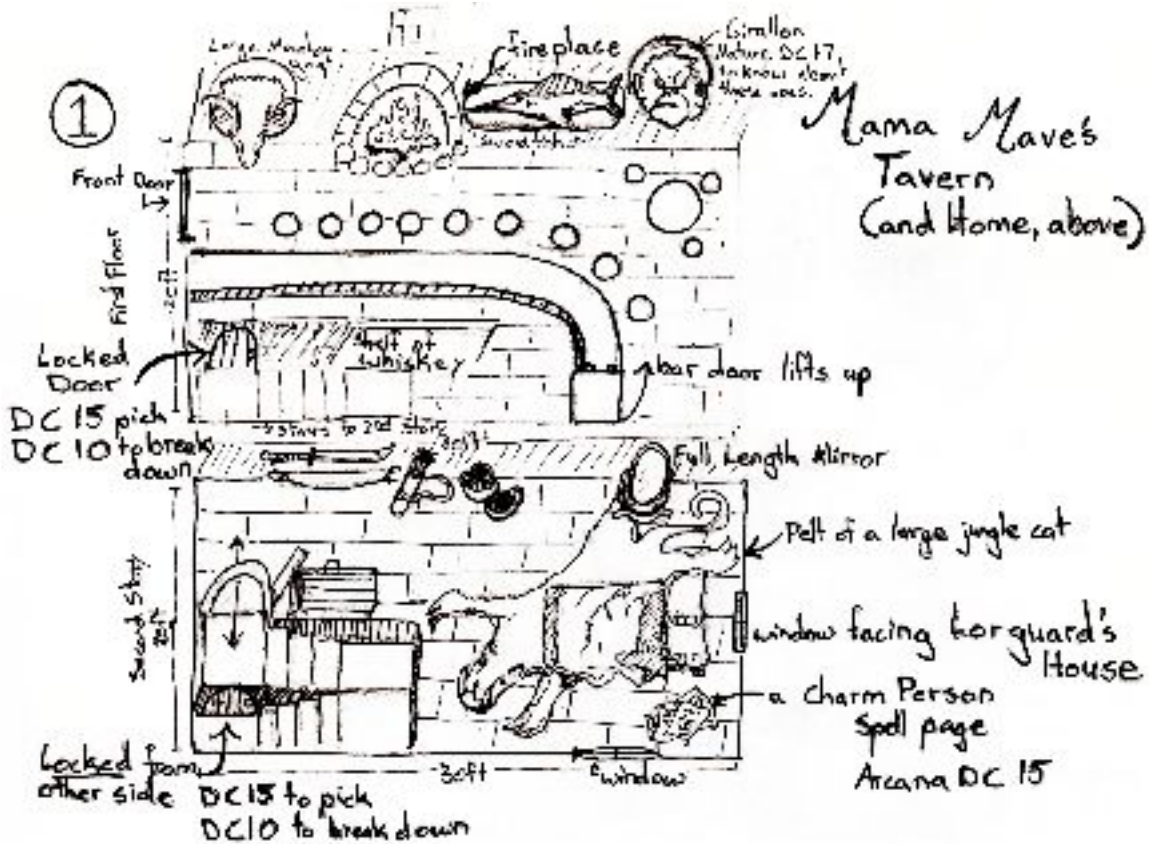 1
Large
Fireplace
Girallon
Nature DC 17,
to know about
these apes.
Mama Mave's
Tavern
(and Home, above)
Front Door
First Floor
20ft
Shelf of
whiskey
Locked
Door
DC 15 pick
DC 10 to break
down
bar door lifts up
Stairs to 2nd Story
Full Length Mirror
Pelt of a large jungle cat
Second Story
20ft
window facing Korguard's
House
a Charm Person
Spell page
Arcana DC 15
30ft
window
Locked from
other side
DC15 to pick
DC10 to break down